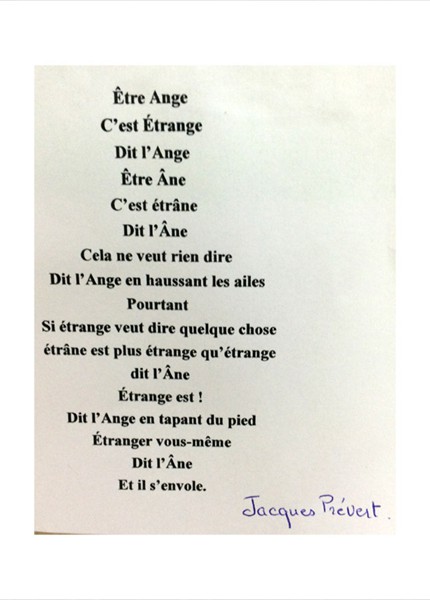 Être Ange
C'est Étrange
Dit l'Ange
Être Âne
C'est étrâne
Dit l'Âne
Cela ne veut rien dire
Dit l'Ange en haussant les ailes
Pourtant
Si étrange veut dire quelque chose
étrâne est plus étrange qu'étrange
dit l'Âne
Étrange est !
Dit l'Ange en tapant du pied
Étranger vous-même
Dit l'Âne
Et il s'envole.
Jacques Prévert.